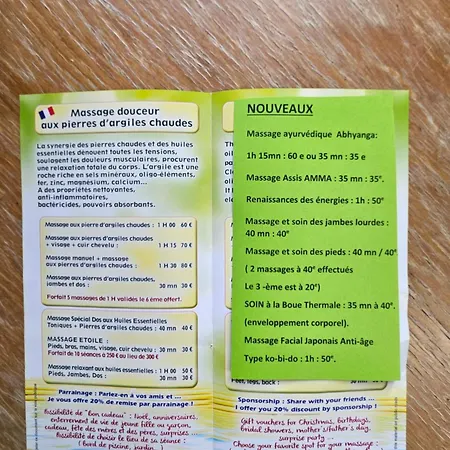 Massage douceur
aux pierres d'argiles chaudes
La synergie des pierres chaudes et des huiles
essentielles dénouent toutes les tensions,
soulagent les douleurs musculaires, procurent
une relaxation totale du corps. L'argile est une
roche riche en sels minéraux, oligo-éléments,
fer, zinc, magnesium, calcium...
A des propriétés nettoyantes,
anti-inflammatoires,
bactéricides, pouvoirs absorbants.
Massage aux pierres d'argiles chaudes : 1 H 00 60 €
Massage aux pierres d'argiles chaudes
+ visage + cuir chevelu : 1 H 15 70 €
Massage manuel + massage
aux pierres d'argiles chaudes : 1 H 30 80 €
Massage aux pierres d'argiles chaudes,
jambes et dos : 30 mn 30 €
Forfait 5 massages de 1 H validés le 6 ème offert.
Massage Spécial Dos aux Huiles Essentielles
Toniques + Pierres d'argiles chaudes : 40 mn 40 €
MASSAGE ETOILE :
Pieds, bras, mains, visage, cuir chevelu : 30 mn 30 €
Forfait de 10 séances à 250 € au lieu de 300 €
Massage relaxant aux huiles essentielles : 1 H 00 50 €
Pieds, Jambes, Dos : 30 mn 30 €
Parrainage : Parlez-en à vos amis et ...
Je vous offre 20% de remise par parrainage !
Possibilité de "Bon cadeau" : Noël, anniversaires,
enterrement de vie de jeune fille ou garçon,
cadeau, fête des mères et des pères, surprises ...
Possibilité de choisir le lieu de sa séance :
( bord de piscine, jardin
NOUVEAUX
Massage ayurvédique Abhyanga:
1h 15mn : 60 e ou 35 mn : 35 e
Massage Assis AMMA : 35 mn : 35°.
Renaissances des énergies : 1h : 50°
Massage et soin des jambes lourdes :
40 mn : 40°
Massage et soin des pieds : 40 mn / 40°
( 2 massages à 40° effectués
Le 3 -ème est à 20°)
SOIN à la Boue Thermale : 35 mn à 40°.
(enveloppement corporel).
Massage Facial Japonais Anti-âge
Type ko-bi-do : 1h : 50°.
Feet, legs, back :
Sponsorship : Share with your friends ...
I offer you 20% discount by sponsorship !
Gift vouchers for Christmas, birthdays,
bridal showers, mother's/father's day,
surprise party ...
Choose your favorite spot for your massage :